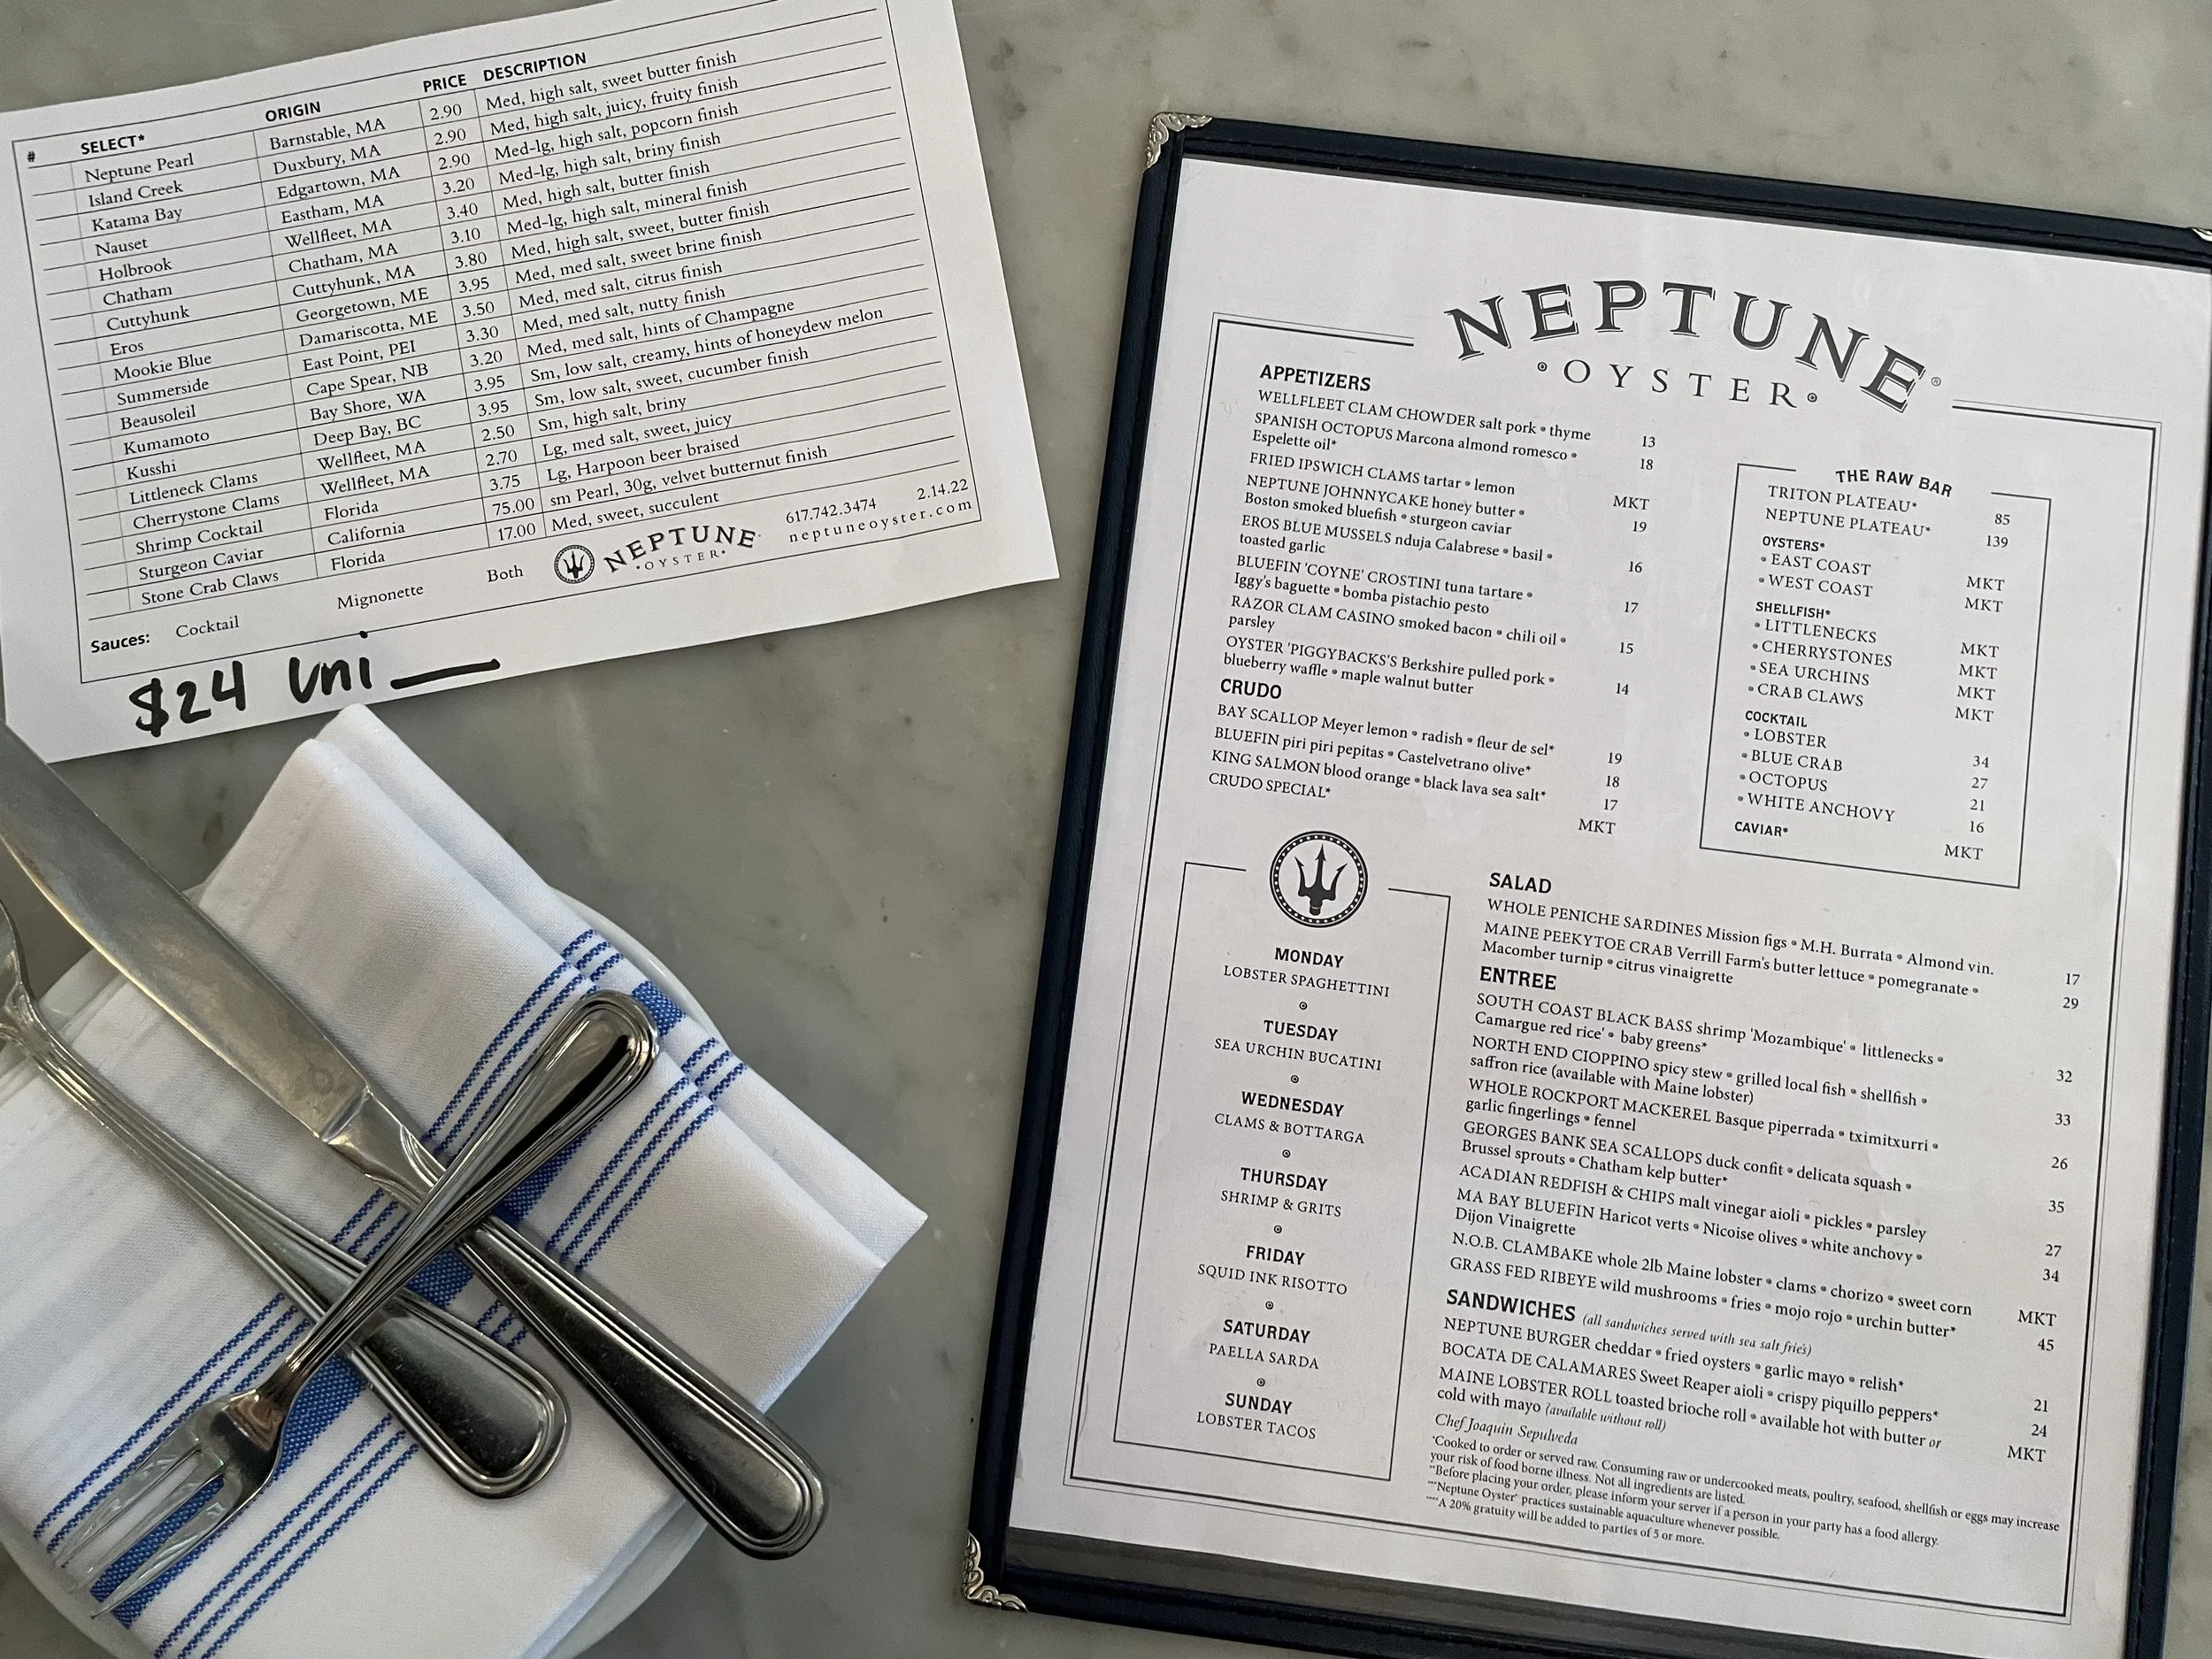 # SELECT* ORIGIN PRICE DESCRIPTION
Neptune Pearl Barnstable, MA 2.90 Med, high salt, sweet butter finish
Island Creek Duxbury, MA 2.90 Med, high salt, juicy, fruity finish
Katama Bay Edgartown, MA 2.90 Med-lg, high salt, popcorn finish
Nauset Eastham, MA 3.20 Med-lg, high salt, briny finish
Holbrook Wellfleet, MA 3.40 Med, high salt, butter finish
Chatham Chatham, MA 3.10 Med-lg, high salt, mineral finish
Cuttyhunk Cuttyhunk, MA 3.80 Med, high salt, sweet, butter finish
Eros Georgetown, ME 3.95 Med, med salt, sweet brine finish
Mookie Blue Damariscotta, ME 3.50 Med, med salt, citrus finish
Summerside East Point, PEI 3.30 Med, med salt, nutty finish
Beausoleil Cape Spear, NB 3.20 Med, med salt, hints of Champagne
Kumamoto Bay Shore, WA 3.95 Sm, low salt, creamy, hints of honeydew melon
Kusshi Deep Bay, BC 3.95 Sm, low salt, sweet, cucumber finish
Littleneck Clams Wellfleet, MA 2.50 Sm, high salt, briny
Cherrystone Clams Wellfleet, MA 2.70 Lg, med salt, sweet, juicy
Shrimp Cocktail Florida 3.75 Lg, Harpoon beer braised
Sturgeon Caviar California 75.00 sm Pearl, 30g, velvet butternut finish
Stone Crab Claws Florida 17.00 Med, sweet, succulent
Sauces: Cocktail Mignonette Both
NEPTUNE
•OYSTER•
617.742.3474 2.14.22
neptuneoyster.com
$24 uni
NEPTUNE®
•OYSTER•
APPETIZERS
WELLFLEET CLAM CHOWDER salt pork • thyme 13
SPANISH OCTOPUS Marcona almond romesco •
Espelette oil* 18
FRIED IPSWICH CLAMS tartar • lemon MKT
NEPTUNE JOHNNYCAKE honey butter •
Boston smoked bluefish • sturgeon caviar 19
EROS BLUE MUSSELS nduja Calabrese • basil •
toasted garlic 16
BLUEFIN 'COYNE' CROSTINI tuna tartare •
Iggy's baguette • bomba pistachio pesto 17
RAZOR CLAM CASINO smoked bacon • chili oil •
parsley 15
OYSTER 'PIGGYBACKS'S Berkshire pulled pork •
blueberry waffle • maple walnut butter 14
CRUDO
BAY SCALLOP Meyer lemon • radish • fleur de sel* 19
BLUEFIN piri piri pepitas • Castelvetrano olive* 18
KING SALMON blood orange • black lava sea salt* 17
CRUDO SPECIAL* MKT
THE RAW BAR
TRITON PLATEAU* 85
NEPTUNE PLATEAU* 139
OYSTERS*
• EAST COAST MKT
• WEST COAST MKT
SHELLFISH*
• LITTLENECKS MKT
• CHERRYSTONES MKT
• SEA URCHINS MKT
• CRAB CLAWS MKT
COCKTAIL
• LOBSTER 34
• BLUE CRAB 27
• OCTOPUS 21
• WHITE ANCHOVY 16
CAVIAR* MKT
MONDAY
LOBSTER SPAGHETTINI
TUESDAY
SEA URCHIN BUCATINI
WEDNESDAY
CLAMS & BOTTARGA
THURSDAY
SHRIMP & GRITS
FRIDAY
SQUID INK RISOTTO
SATURDAY
PAELLA SARDA
SUNDAY
LOBSTER TACOS
SALAD
WHOLE PENICHE SARDINES Mission figs • M.H. Burrata • Almond vin. 17
MAINE PEEKYTOE CRAB Verrill Farm's butter lettuce • pomegranate • 29
Macomber turnip • citrus vinaigrette
ENTREE
SOUTH COAST BLACK BASS shrimp 'Mozambique' • littlenecks •
Camargue red rice' • baby greens* 32
NORTH END CIOPPINO spicy stew • grilled local fish • shellfish •
saffron rice (available with Maine lobster) 33
WHOLE ROCKPORT MACKEREL Basque piperrada • tximitxurri •
garlic fingerlings • fennel 26
GEORGES BANK SEA SCALLOPS duck confit • delicata squash •
Brussel sprouts • Chatham kelp butter* 35
ACADIAN REDFISH & CHIPS malt vinegar aioli • pickles • parsley 27
MA BAY BLUEFIN Haricot verts • Nicoise olives • white anchovy • 34
Dijon Vinaigrette
N.O.B. CLAMBAKE whole 2lb Maine lobster • clams • chorizo • sweet corn MKT
GRASS FED RIBEYE wild mushrooms • fries • mojo rojo • urchin butter* 45
SANDWICHES (all sandwiches served with sea salt fries)
NEPTUNE BURGER cheddar • fried oysters • garlic mayo • relish* 21
BOCATA DE CALAMARES Sweet Reaper aioli • crispy piquillo peppers* 24
MAINE LOBSTER ROLL toasted brioche roll • available hot with butter or MKT
cold with mayo (available without roll)
Chef Joaquin Sepulveda
*Cooked to order or served raw. Consuming raw or undercooked meats, poultry, seafood, shellfish or eggs may increase
your risk of food borne illness. Not all ingredients are listed.
**Before placing your order, please inform your server if a person in your party has a food allergy.
***Neptune Oyster® practices sustainable aquaculture whenever possible.
****A 20% gratuity will be added to parties of 5 or more.